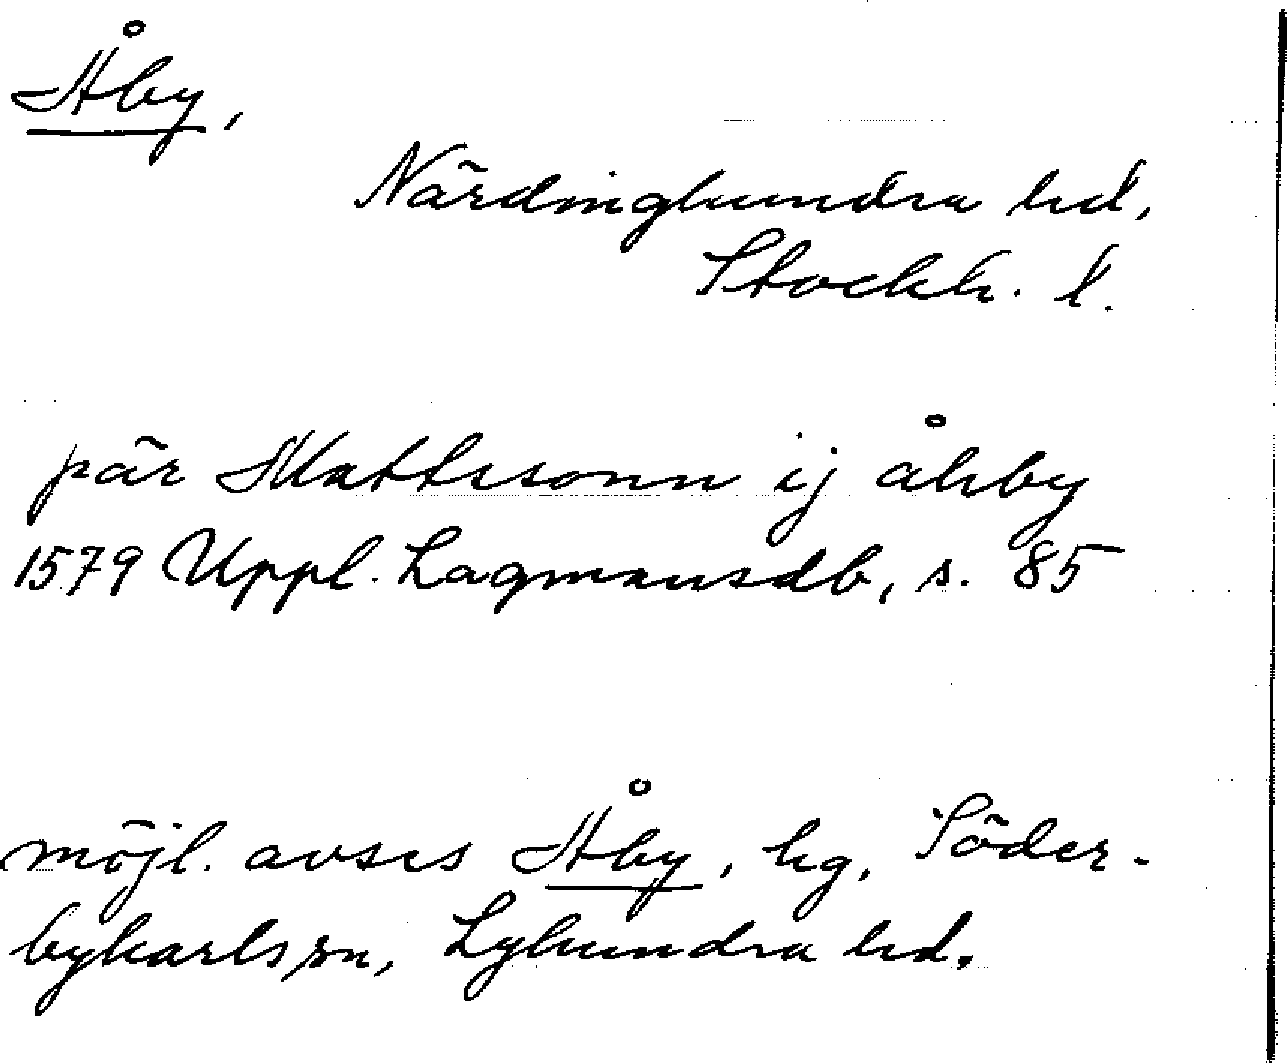 Åby,
Närdinghundra hd,
Stockh. l.
pär Mattssonn ij åhby
1579 Uppl. Lagmansdb, s. 85
möjl. avses Åby, hg, Söder-
bykarls sn, Lyhundra hd.